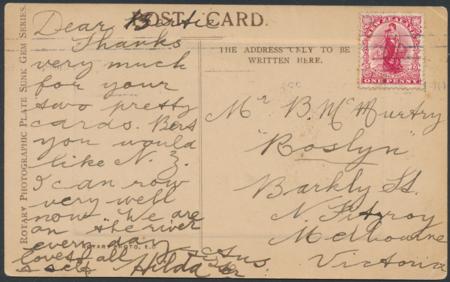 POST CARD.
THE ADDRESS ONLY TO BE
WRITTEN HERE.
ROTARY PHOTOGRAPHIC PLATE SUNK GEM SERIES.
Dear Bertie
Thanks
very much
for your
two pretty
cards. Bert
you would
like N. Z.
I can row
very well
now. We are
on the river
every day
love to all
& self Hilda
NEW ZEALAND
ONE PENNY
Mr B. McMurtry
"Roslyn"
Barkly St.
N. Fitzroy
Melbourne
Victoria
Aus